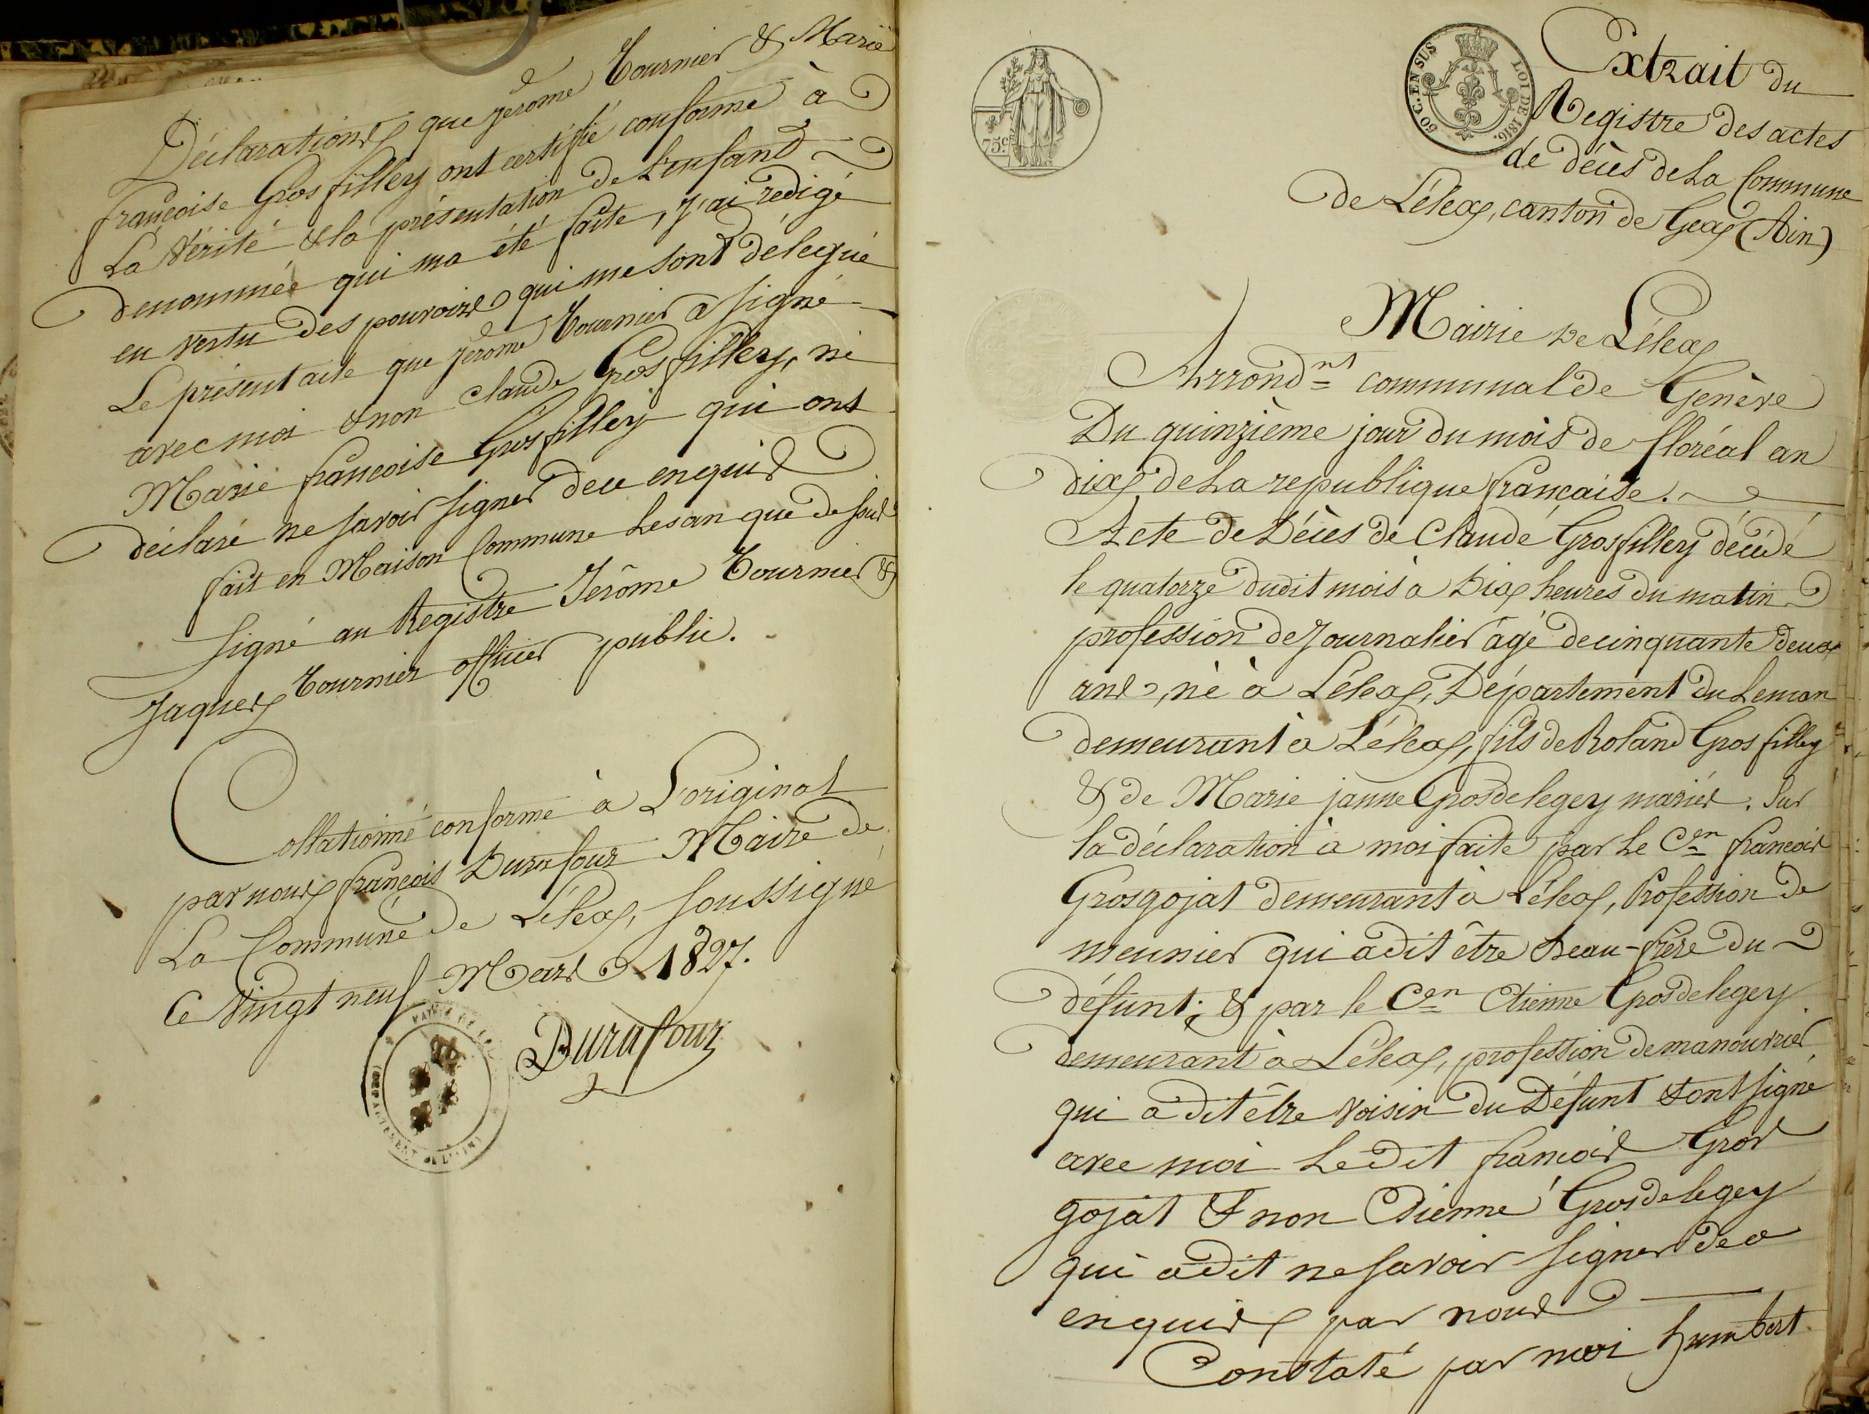 Déclarations que jérome Tournier & Marie
françoise Grosfilley ont certifié conforme à
La Vérité & la présentation de L'enfant
denommée qui ma été faite, j'ai redigé
en vertu des pouvoirs qui me sont délegué
Le présent acte que jérome Tournier a signé
avec moi & non claude Grosfilley, ni
Marie françoise Grosfilley qui ont
déclaré ne savoir signer de ce enquis
fait en Maison Commune Les an que dessus
signé au Registre Jérôme Tournier &
Jaques Tournier officier public.
Collationné conforme à L'original
par nous françois Durafour Maire de
La Commune de Lélex, soussigné
Ce Vingt neuf Mars 1827.
Durafour
75c
50 C. EN SUS
LOI DE 1816.
Extrait du
Registre des actes
de décès de La Commune
de Lélex, canton de Gex (Ain)
Mairie de Lélex
Arrondnt communal de Genève
Du quinzième jour du mois de floréal an
dix de La republique française.
Acte de Décès de Claude Grosfilley décédé
le quatorze dudit mois à Dix heures du matin
profession de Journalier âgé de cinquante deux
ans, né à Lélex, Département du Leman
demeurant à Lélex, fils de Roland Grosfilley
& de Marie janne Grosdelegey mariés. Sur
la déclaration à moi faite par Le Cen francois
Grosgojat demeurant à Lélex, Profession de
meunier qui a dit être beau-frère du
défunt; & par le Cen Etienne Grosdelegey
demeurant à Lélex, profession de manouvrier
qui a dit être voisin du Défunt & ont signé
avec moi Le dit francois Gros
gojat & non Etienne Grosdelegey
qui a dit ne savoir signer de ce
enquis par nous
Constaté par moi humbert